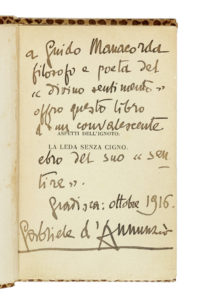 a Guido Manacorda
filosofo e poeta del
"divino sentimento"
offro questo libro
d'un convalescente
ASPETTI DELL'IGNOTO.
LA LEDA SENZA CIGNO.
ebro del suo "sen-
tire".
Gradisca: ottobre 1916.
Gabriele d'Annunzio